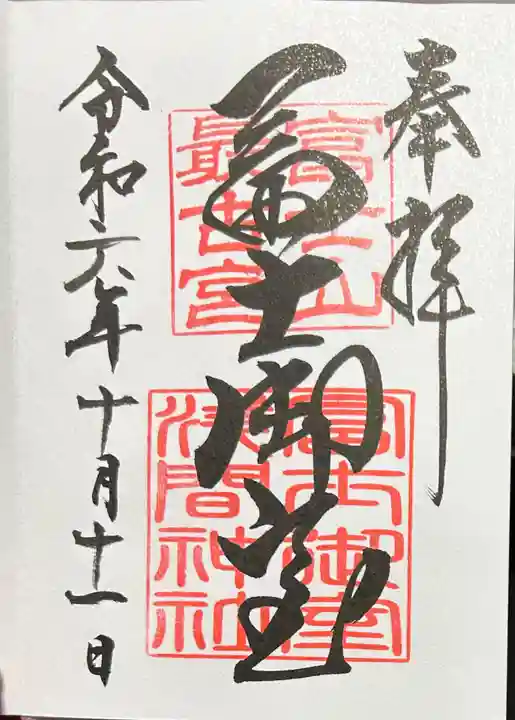 奉拝
冨士御室
令和六年十月十一日
富士山
最古宮
冨士御室
浅間神社